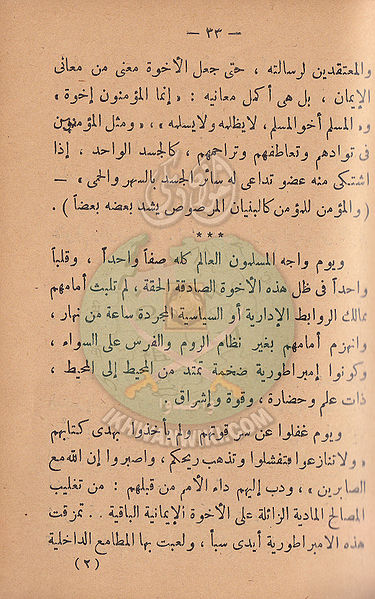 — ٣٣ —
والمعتقدين لرسالته ، حتى جعل الأخوة معنى من معانى
الإيمان ، بل هى أكمل معانيه : « إنما المؤمنون إخوة »
و « المسلم أخو المسلم ، لايظلمه ولايسلمه » ، « ومثل المؤمنين
فى توادهم وتعاطفهم وتراحمهم ، كالجسد الواحد ، إذا
اشتكى منه عضو تداعى له سائر الجسد بالسهر والحمى » —
( والمؤمن للمؤمن كالبنيان المرصوص يشد بعضه بعضاً ) .
***
ويوم واجه المسلمون العالم كله صفاً واحداً ، وقلباً
واحداً فى ظل هذه الأخوة الصادقة الحقة ، لم تلبث أمامهم
ممالك الروابط الإدارية أو السياسية المجردة ساعة من نهار ،
وانهزم أمامهم بغير نظام الروم والفرس على السواء ،
وكونوا إمبراطورية ضخمة تمتد من المحيط إلى المحيط ،
ذات علم وحضارة ، وقوة وإشراق .
ويوم غفلوا عن سر قوتهم ولم يأخذوا بهدى كتابهم
« ولاتنازعوا فتفشلوا وتذهب ريحكم ، واصبروا إن الله مع
الصابرين » ، ودب إليهم داء الأمم من قبلهم : من تغليب
المصالح المادية الزائلة على الأخوة الإيمانية الباقية . . تمزقت
هذه الامبراطورية أيدى سبأ ، ولعبت بها المطامع الداخلية
( ٢ )
IKHWANWIKI.COM